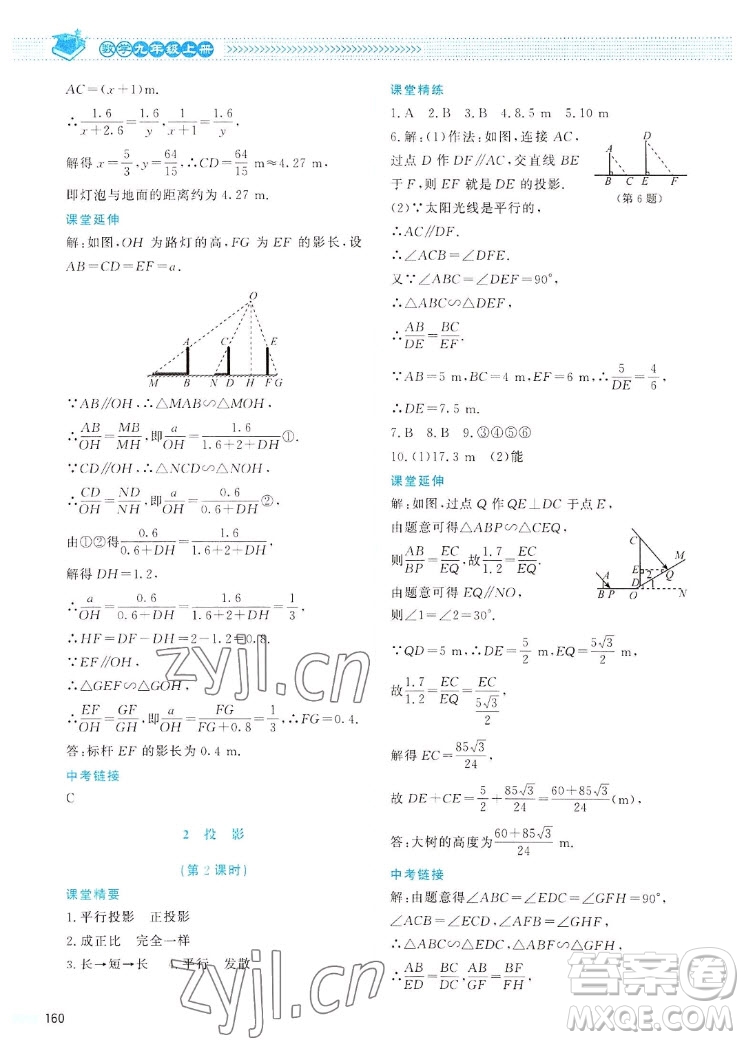 数学九年级上册
AC=(x+1)m.
∴1.6/(x+2.6)=1.6/y, 1.6/(x+1)=1.6/y,
解得 x=5/3, y=64/15, ∴CD=64/15 m≈4.27 m.
即灯泡与地面的距离约为 4.27 m.
课堂延伸
解:如图,OH 为路灯的高,FG 为 EF 的影长,设
AB=CD=EF=a.
O
A C E
M B N D H F G
∵AB∥OH,∴△MAB∽△MOH.
∴AB/OH=MB/MH,即a/OH=1.6/(1.6+2+DH)①.
∵CD∥OH,∴△NCD∽△NOH.
∴CD/OH=ND/NH,即a/OH=0.6/(0.6+DH)②,
由①②得0.6/(0.6+DH)=1.6/(1.6+2+DH).
解得 DH=1.2,
∴a/OH=0.6/(0.6+DH)=0.6/(0.6+1.2)=1/3,
∴HF=DF-DH=2-1.2=0.8.
∵EF∥OH,
∴△GEF∽△GOH,
∴EF/OH=GF/GH,即a/OH=FG/(FG+HF)=1/3,∴FG=0.4.
答:标杆 EF 的影长为 0.4 m.
中考链接
C
2 投影
(第 2 课时)
课堂精要
1.平行投影 正投影
2.成正比 完全一样
3.长→短→长 4.平行 发散
160
课堂精练
1.A 2.B 3.B 4.8.5 m 5.10 m
6.解:(1)作法:如图,连接 AC,
过点 D 作 DF∥AC,交直线 BE
于 F,则 EF 就是 DE 的投影.
A D
B C E F
(第 6 题)
(2)∵太阳光线是平行的,
∴AC∥DF.
∴∠ACB=∠DFE.
又∵∠ABC=∠DEF=90°,
∴△ABC∽△DEF,
∴AB/DE=BC/EF.
∵AB=5 m,BC=4 m,EF=6 m,∴5/DE=4/6,
∴DE=7.5 m.
7.B 8.B 9.③④⑤⑥
10.(1)17.3 m (2)能
课堂延伸
解:如图,过点 Q 作 QE⊥DC 于点 E,
由题意可得△ABP∽△CEQ,
则AB/BP=EC/EQ,故1.7/1.2=EC/EQ.
由题意可得 EQ∥NO,
则∠1=∠2=30°.
C M
E 2 Q
A D 1
B P O N
∵QD=5 m,∴DE=5/2 m,EQ=5√3/2 m,
故1.7/1.2=EC/EQ=EC/(5√3/2),
解得 EC=85√3/24,
故 DE+CE=5/2+85√3/24=(60+85√3)/24(m),
答:大树的高度为(60+85√3)/24 m.
中考链接
解:由题意可得∠ABC=∠EDC=∠GFH=90°,
∠ACB=∠ECD,∠AFB=∠GHF,
∴△ABC∽△EDC,△ABF∽△GFH,
∴AB/ED=BC/DC,AB/GF=BF/FH,
zyjl.cn
zyjl.cn
答案圈
MXQE.COM